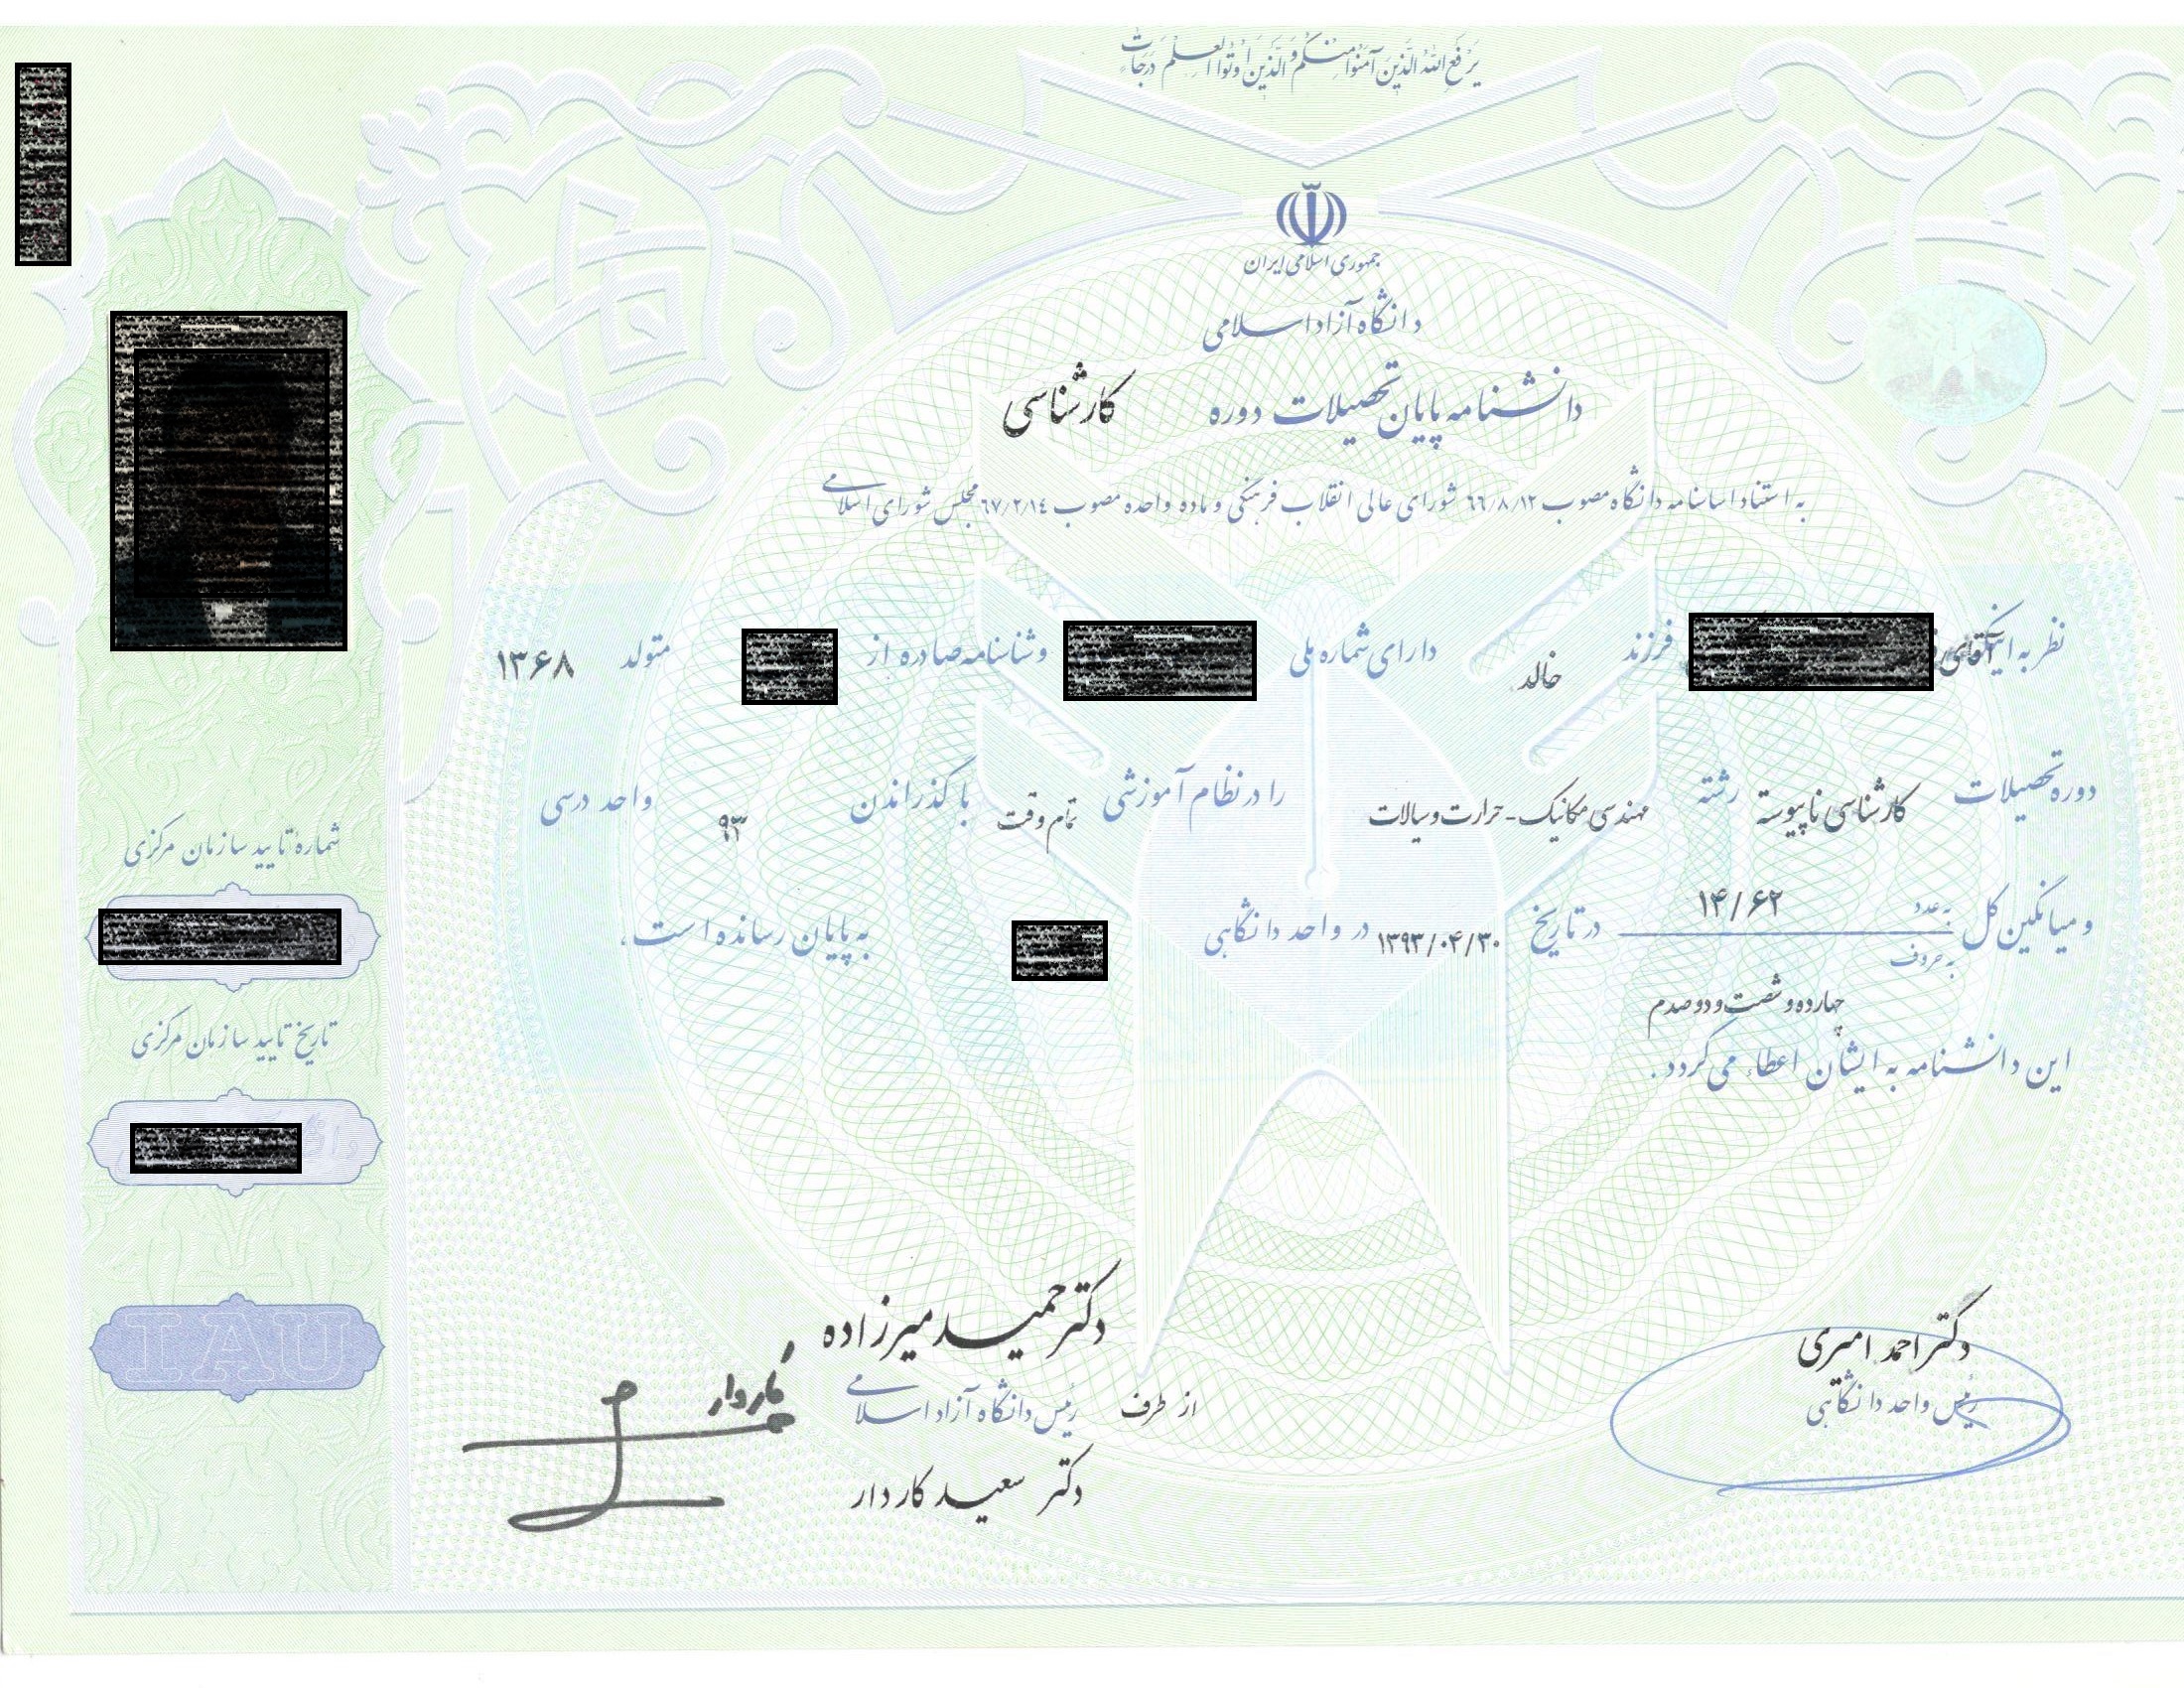 یرفع الله الذین آمنوا منکم و الذین اوتوا العلم درجات
جمهوری اسلامی ایران
دانشگاه آزاد اسلامی
دانشنامه پایان تحصیلات دوره کارشناسی
به استناد اساسنامه دانشگاه مصوب ۶۶/۸/۱۲ شورای عالی انقلاب فرهنگی و ماده واحده مصوب ۶۷/۲/۱۴ مجلس شورای اسلامی
نظر به اینکه آقای فرزند خالد دارای شماره ملی و شناسنامه صادره از متولد ۱۳۶۸
دوره تحصیلات کارشناسی ناپیوسته رشته مهندسی مکانیک - حرارت و سیالات را در نظام آموزشی تمام وقت با گذراندن ۹۳ واحد درسی
و میانگین کل به عدد ۱۴/۶۲ در تاریخ ۱۳۹۳/۰۴/۳۰ در واحد دانشگاهی به پایان رسانده است.
به حروف
چهارده و شصت و دو صدم
این دانشنامه به ایشان اعطاء می گردد.
شماره تایید سازمان مرکزی
تاریخ تایید سازمان مرکزی
IAU
دکتر احمد امیری
رئیس واحد دانشگاهی
دکتر حمید میرزاده
از طرف رئیس دانشگاه آزاد اسلامی
دکتر سعید کاردار